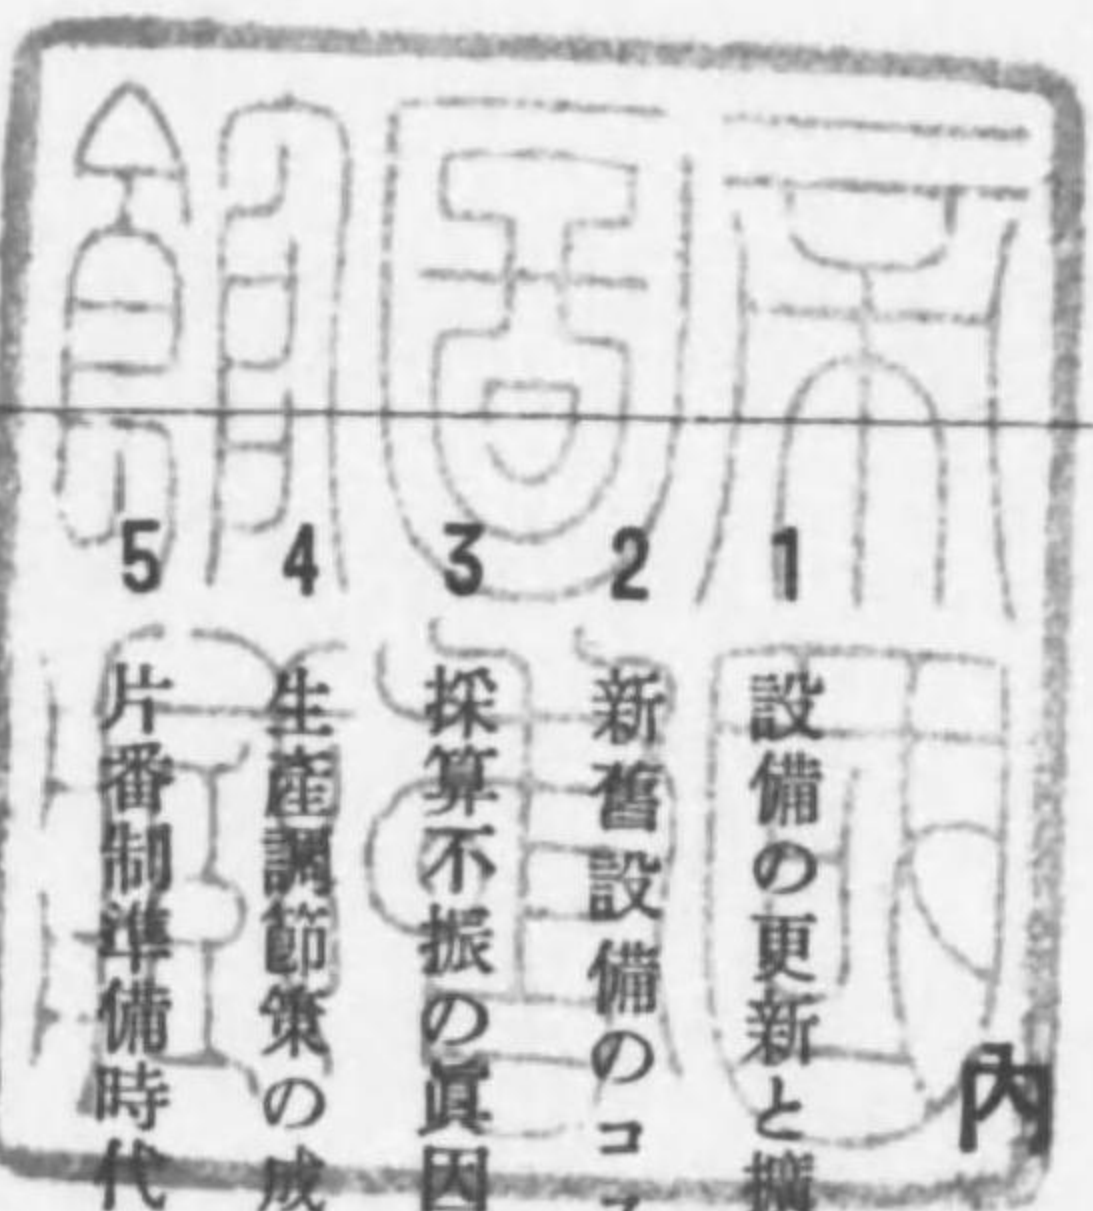 內
1 設備の更新と擴
2 新舊設備のコ
3 採算不振の眞因
4 生產調節策の成
5 片番制準備時代
帝國
圖書
館藏